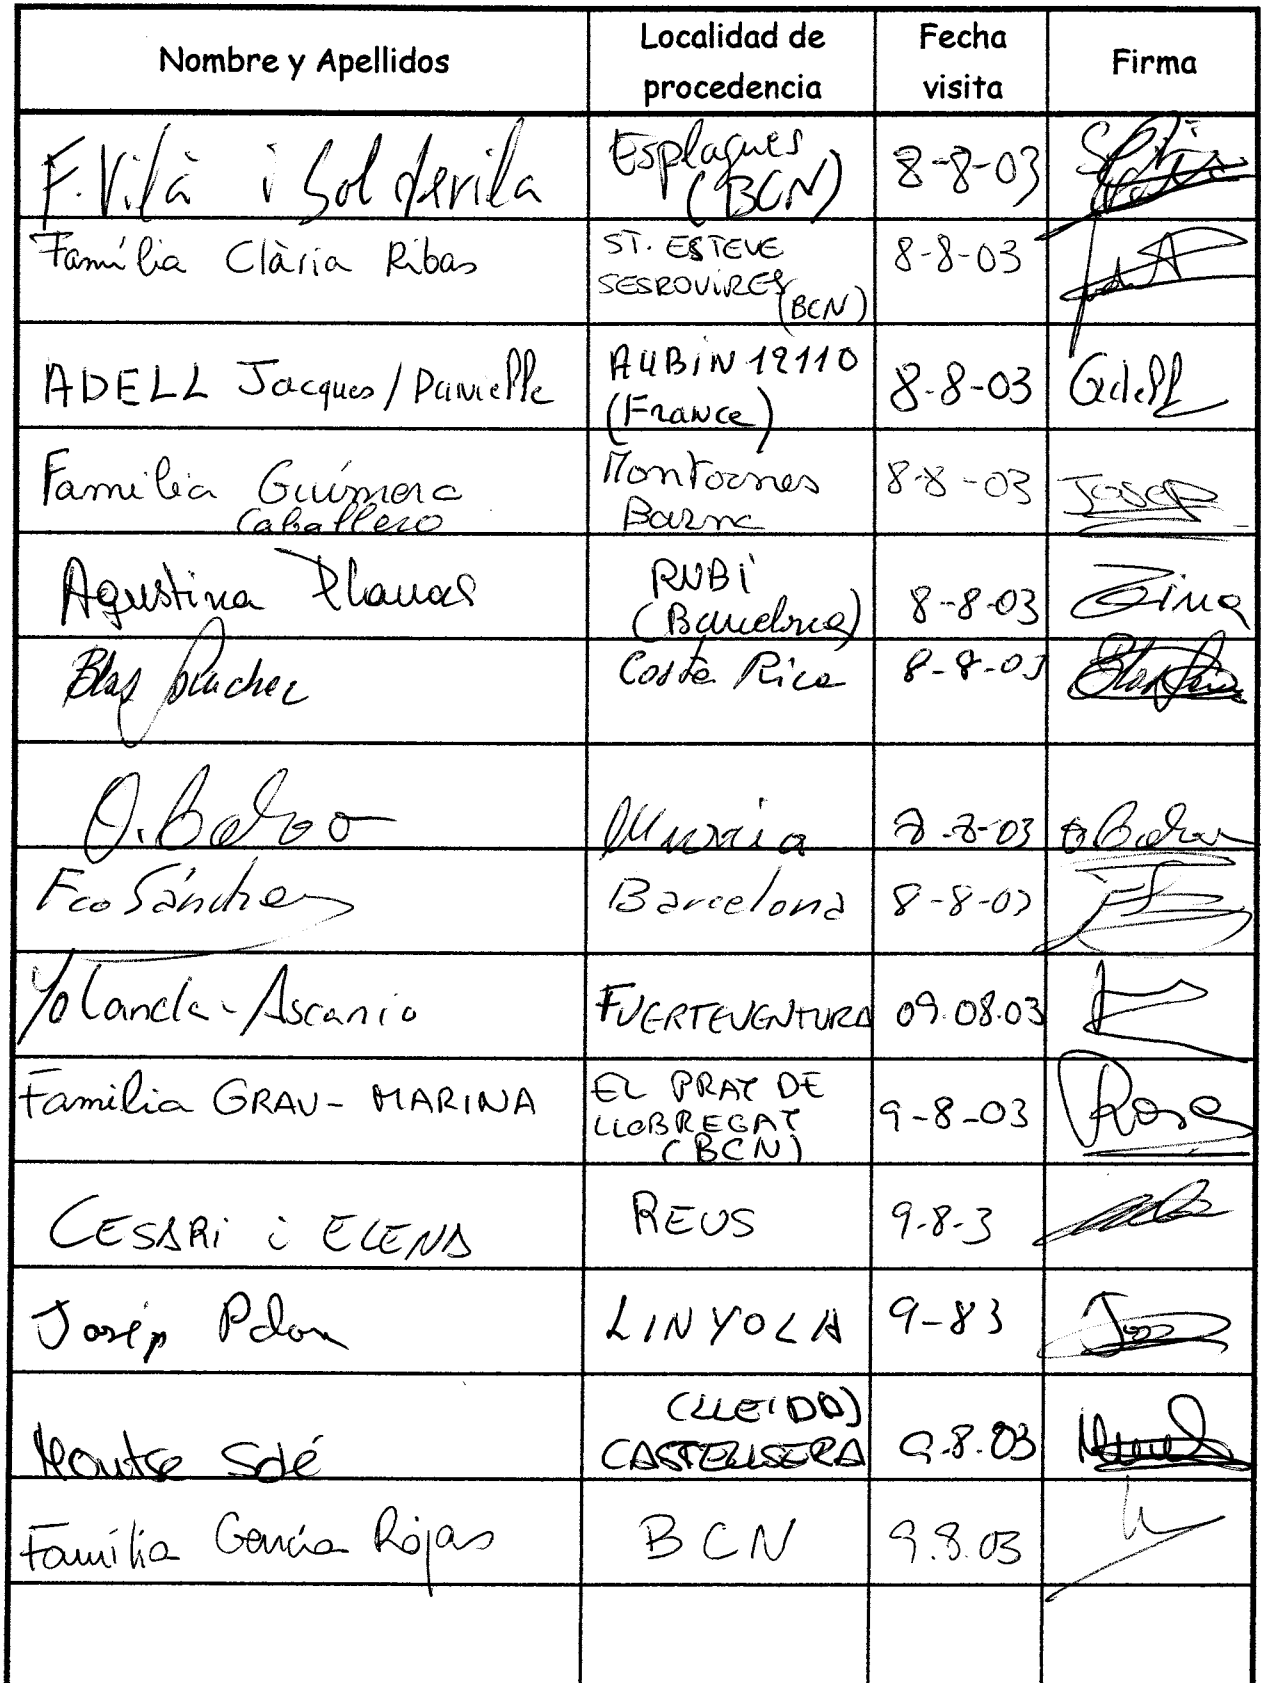 Nombre y Apellidos
Localidad de
procedencia
Fecha
visita
Firma
F. Vilà i Soldevila
Esplugues
(BCN)
8-8-03
Família Clària Ribas
ST. ESTEVE
SESROVIRES
(BCN)
8-8-03
ADELL Jacques/Danielle
AUBIN 12110
(France)
8-8-03
Adell
Familia Guimera
Caballero
Montornes
Barna
8-8-03
Josep
Agustina Planas
RUBÍ
(Barcelona)
8-8-03
Zina
Blas Sanchez
Costa Rica
8-8-03
Murcia
8-8-03
Fco Sánchez
Barcelona
8-8-03
Yolanda-Ascanio
FUERTEVENTURA
09.08.03
Familia GRAU-MARINA
EL PRAT DE
LLOBREGAT
(BCN)
9-8-03
Rosa
CESARI i ELENA
REUS
9-8-3
Josép
LINYOLA
9-83
(LLEIDA)
Montse Solé
CASTELLSERA
9.8.03
Família García Rojas
BCN
9.8.03